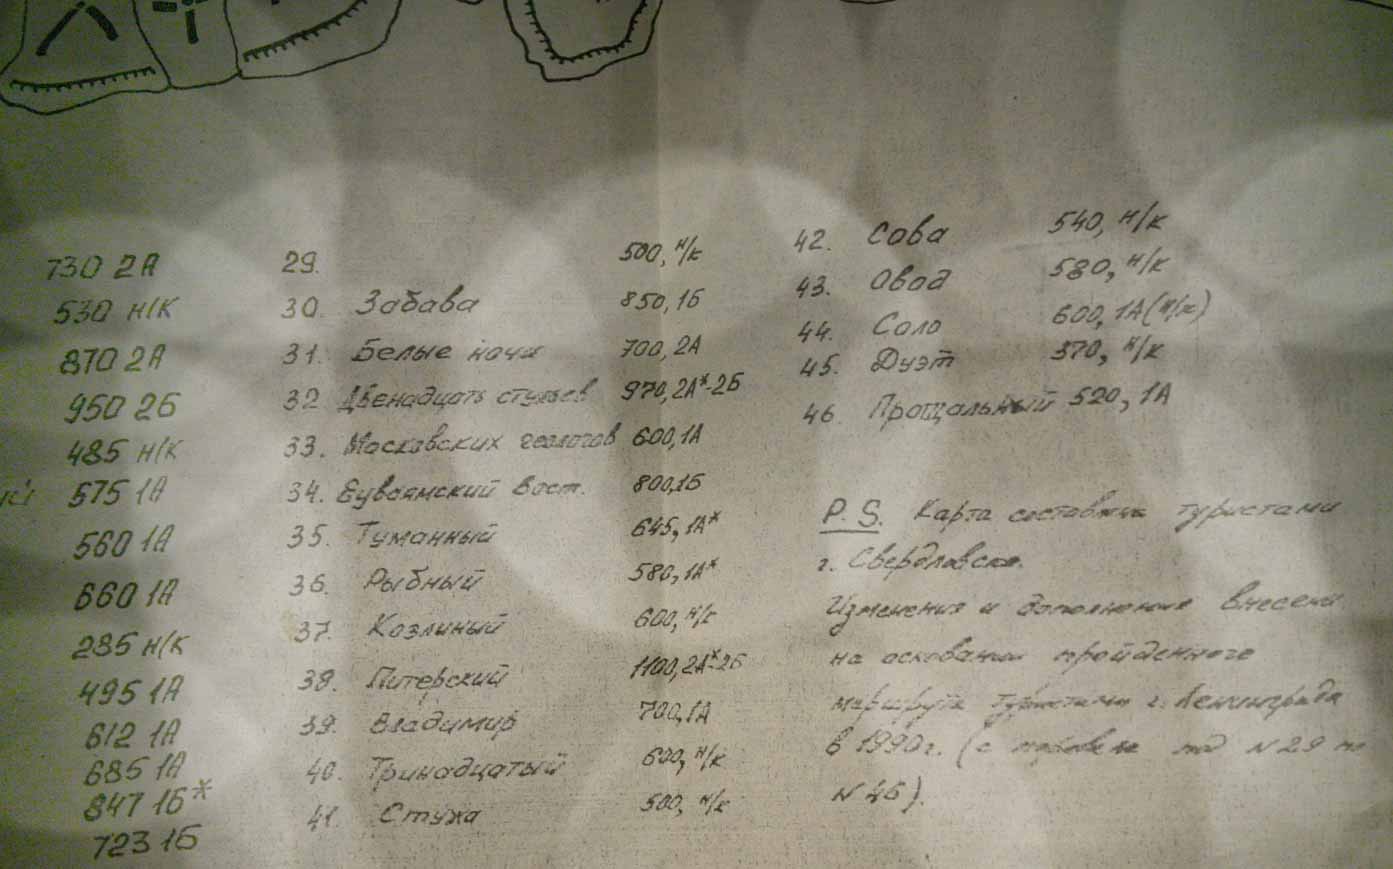 730 2А
530 Н/К
870 2А
950 2Б
485 Н/К
575 1А
560 1А
660 1А
285 Н/К
495 1А
612 1А
685 1А
847 1Б*
723 1Б
29. 500, н/к
30. Забава 850, 1Б
31. Белые ночи 700, 2А
32 Двенадцать стульев 970, 2А*-2Б
33. Московских геологов 600, 1А
34. Вост. 800, 1Б
35. Туманный 645, 1А*
36. Рыбный 580, 1А*
37. Козлиный 600, н/к
38. Питерский 1100, 2А*-2Б
39. Владимир 700, 1А
40. Тринадцатый 600, н/к
41. Стужа 500, н/к
42. Сова 540, н/к
43. Овод 580, н/к
44. Соло 600, 1А (н/к)
45. Дуэт 570, н/к
46. Прощальный 520, 1А
P.S. Карта составлена туристами
г. Свердловска.
Изменения и дополнения внесены
на основании пройденного
маршрута туристами г. Ленинграда
в 1990г. (с перевала под N 29 по
N 46).